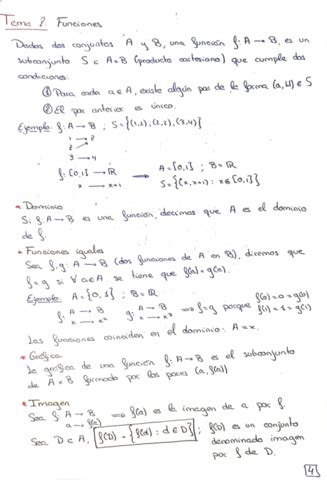 Tema 2: Funciones
Dados dos conjuntos A y B, una función f: A → B, es un
subconjunto S ⊂ A×B (producto cartesiano) que cumple dos
condiciones:
① Para cada a ∈ A, existe algún par de la forma (a, b) ∈ S
② El par anterior es único.
Ejemplo: f: A → B ; S = {(1,2), (2,2), (3,4)}
1 → 2
2
3 → 4
f: [0,1] → ℝ ⟶ A = [0,1] ; B = ℝ
x → x+1 S = {(x, x+1) : x ∈ [0,1]}
* Dominio
Si f: A → B es una función, decimos que A es el dominio
de f.
* Funciones iguales
Sea f, g: A → B (dos funciones de A en B), diremos que
f = g si ∀ a ∈ A se tiene que f(a) = g(a).
Ejemplo: A = {0, 1} ; B = ℝ
f: A → B g: A → B ⟹ f = g porque f(0) = 0 = g(0)
x → x² x → x³ f(1) = 1 = g(1)
Las funciones coinciden en el dominio: A = x.
* Gráfica
La gráfica de una función f: A → B es el subconjunto
de A × B formado por los pares (a, f(a))
* Imagen
Sea f: A → B ⟹ f(a) es la imagen de a por f.
a → f(a)
Sea D ⊂ A, f(D) = {f(d) : d ∈ D} ; f(D) es un conjunto
denominado imagen
por f de D.
4